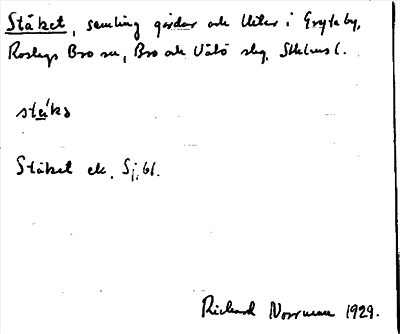 Stäket, samling gårdar och lhter i Grytaby,
Roslags Bro sn, Bro och Vätö skg, Sthlms l.
stä́ka
Stäket ek. Sj.bl.
Richard Norrman 1929.